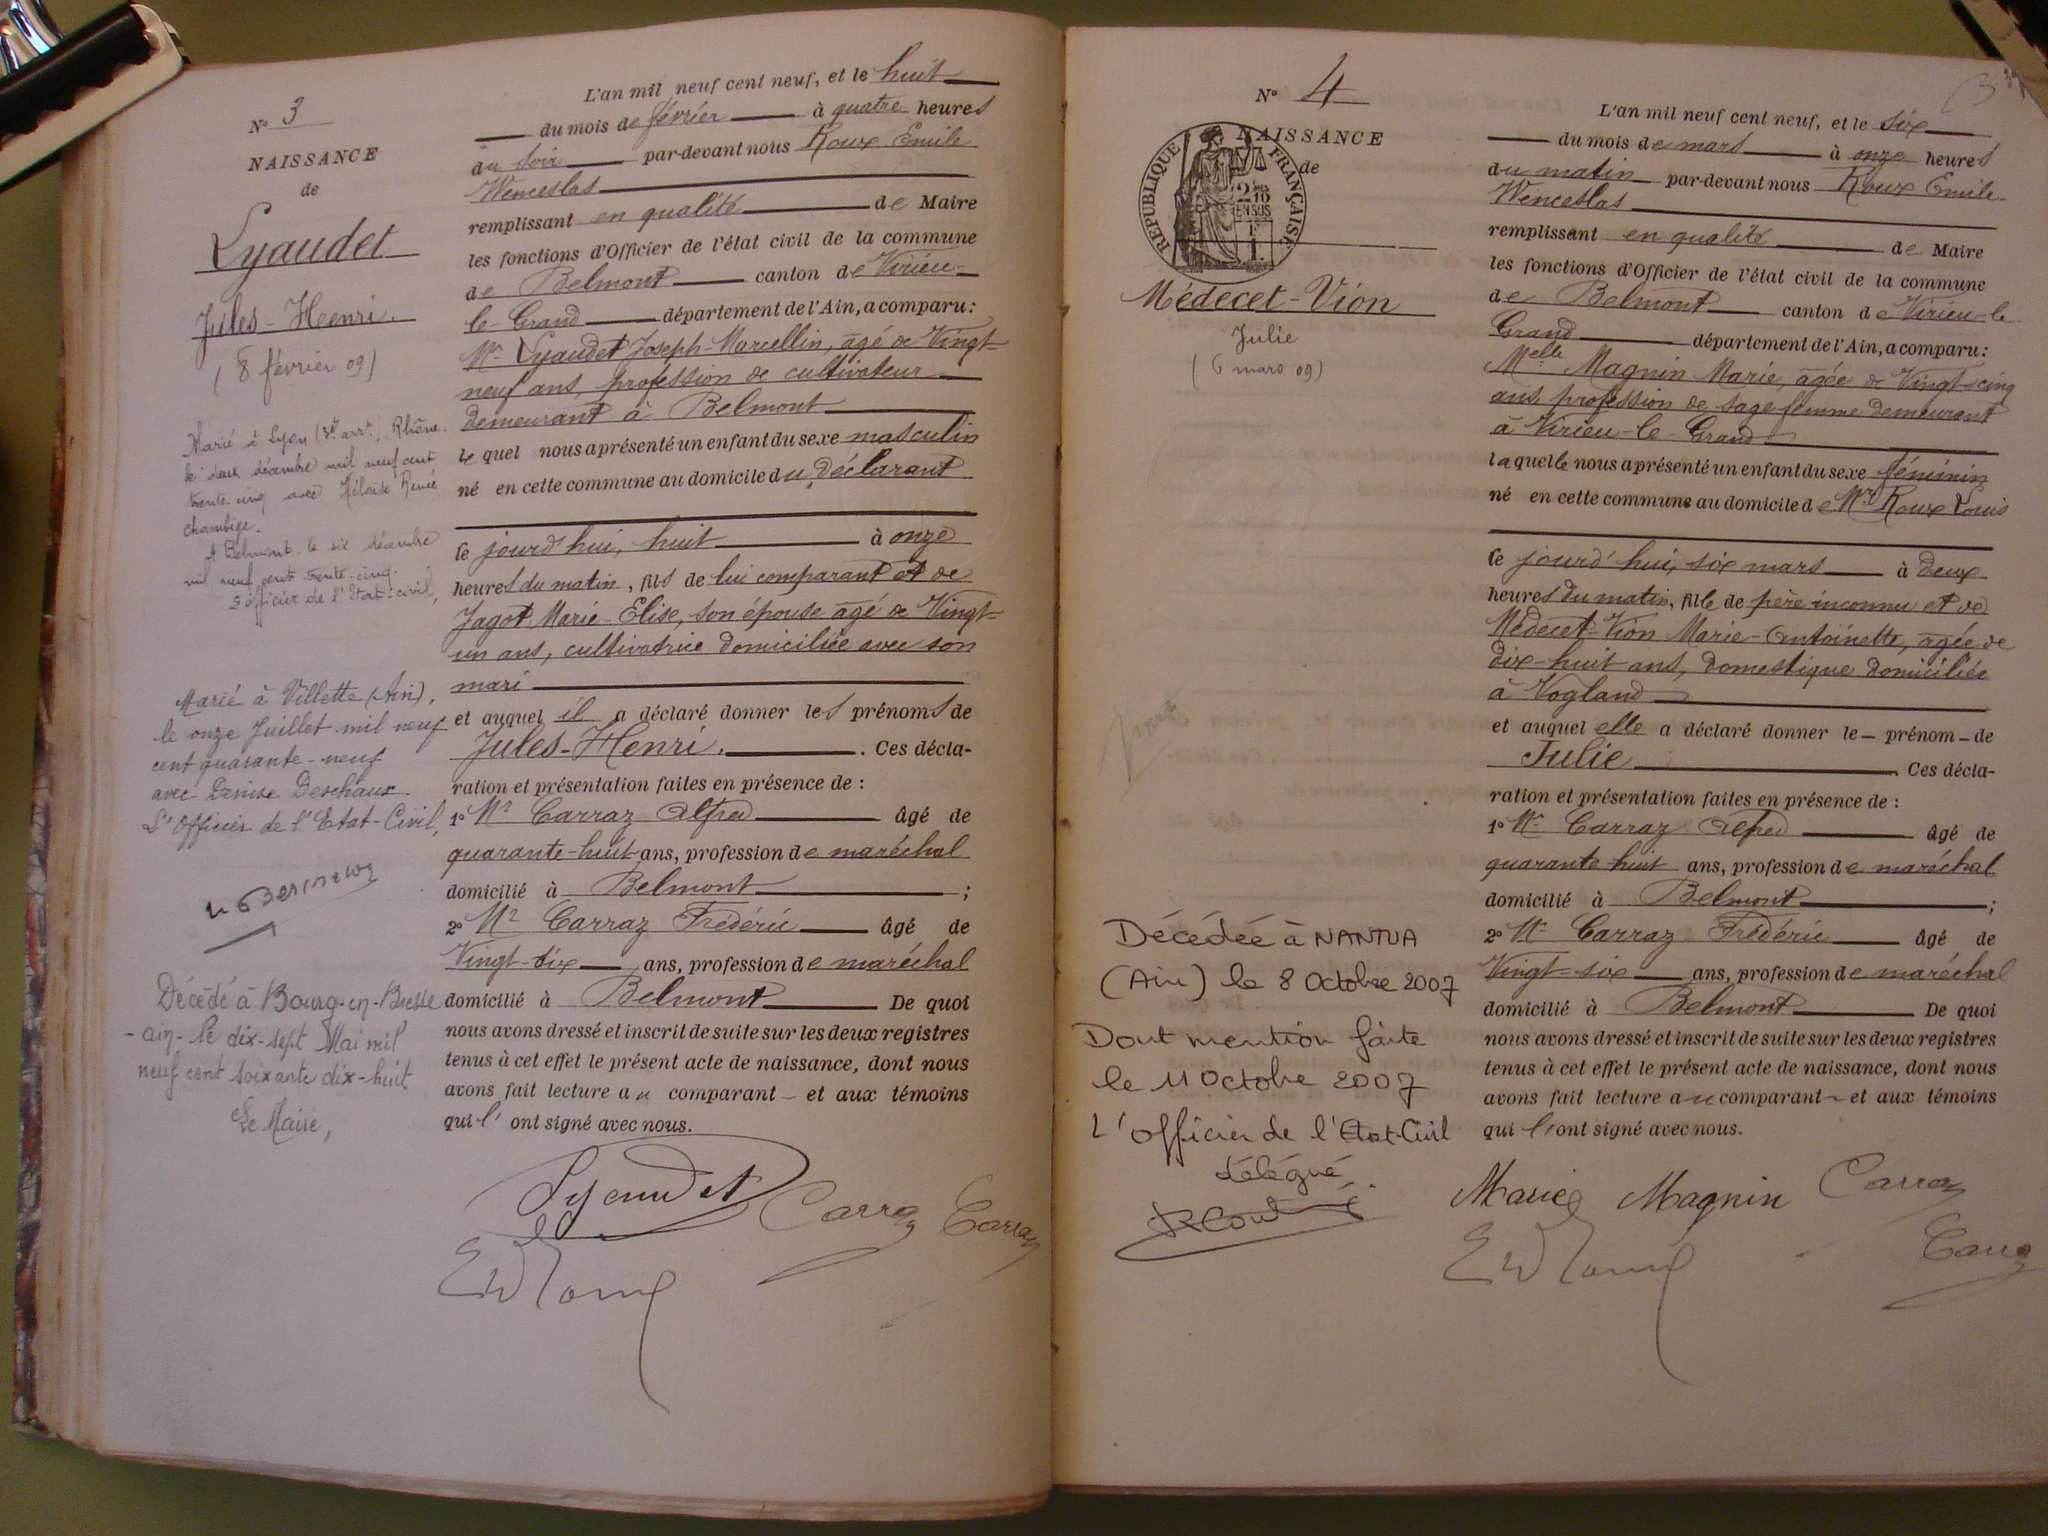 N° 3
NAISSANCE
de
Lyaudet
Jules-Henri.
(8 février 09)
Marié à Lyon (3e arrt) Rhône.
le deux décembre mil neuf cent
trente cinq avec Héloïse Renée
Chambige.
A Belmont le six décembre
mil neuf cent trente-cinq.
L'officier de l'Etat-civil,
Marié à Villette (Ain),
le onze Juillet mil neuf
cent quarante-neuf
avec Denise Deschaux.
L'Officier de l'Etat-Civil,
Décédé à Bourg-en-Bresse
-ain- le dix-sept Mai mil
neuf cent soixante dix-huit
Le Maire,
L'an mil neuf cent neuf, et le huit
du mois de février à quatre heures
du soir par-devant nous Roux Emile
Wenceslas
remplissant en qualité de Maire
les fonctions d'Officier de l'état civil de la commune
de Belmont canton de Virieu-
le-Grand département de l'Ain, a comparu:
Mr Lyaudet Joseph-Marcellin, âgé de Vingt-
neuf ans, profession de cultivateur
demeurant à Belmont
le quel nous a présenté un enfant du sexe masculin
né en cette commune au domicile du déclarant
ce jourd'hui, huit à onze
heures du matin, fils de lui comparant et de
Jagot Marie-Elise, son épouse âgé de Vingt-
un ans, cultivatrice domiciliée avec son
mari
et auquel il a déclaré donner les prénoms de
Jules-Henri. . Ces décla-
ration et présentation faites en présence de :
1° Mr Carraz Alfred âgé de
quarante-huit ans, profession de maréchal
domicilié à Belmont ;
2° Mr Carraz Frédéric âgé de
Vingt-six ans, profession de maréchal
domicilié à Belmont De quoi
nous avons dressé et inscrit de suite sur les deux registres
tenus à cet effet le présent acte de naissance, dont nous
avons fait lecture au comparant et aux témoins
qui l' ont signé avec nous.
Lyaudet Carraz Carraz
N° 4
NAISSANCE
de
RÉPUBLIQUE FRANÇAISE
Médecet-Vion
Julie
(6 mars 09)
Décédée à NANTUA
(Ain) le 8 Octobre 2007
Dont mention faite
le 11 Octobre 2007
L'officier de l'Etat-Civil
délégué
L'an mil neuf cent neuf, et le six
du mois de mars à onze heures
du matin par-devant nous Roux Emile
Wenceslas
remplissant en qualité de Maire
les fonctions d'Officier de l'état civil de la commune
de Belmont canton de Virieu-le
Grand département de l'Ain, a comparu:
Melle Magnin Marie, âgée de Vingt-cinq
ans profession de sage femme demeurant
à Virieu-le-Grand
laquelle nous a présenté un enfant du sexe féminin
né en cette commune au domicile de Mr Roux Louis
ce jourd'hui, six mars à deux
heures du matin, fille de père inconnu et de
Médecet-Vion Marie-Antoinette, âgée de
dix-huit ans, domestique domiciliée
à Vogland
et auquel elle a déclaré donner le prénom de
Julie . Ces décla-
ration et présentation faites en présence de :
1° Mr Carraz Alfred âgé de
quarante-huit ans, profession de maréchal
domicilié à Belmont ;
2° Mr Carraz Frédéric âgé de
Vingt-six ans, profession de maréchal
domicilié à Belmont De quoi
nous avons dressé et inscrit de suite sur les deux registres
tenus à cet effet le présent acte de naissance, dont nous
avons fait lecture au comparant et aux témoins
qui l' ont signé avec nous.
Marie Magnin Carraz
Carraz